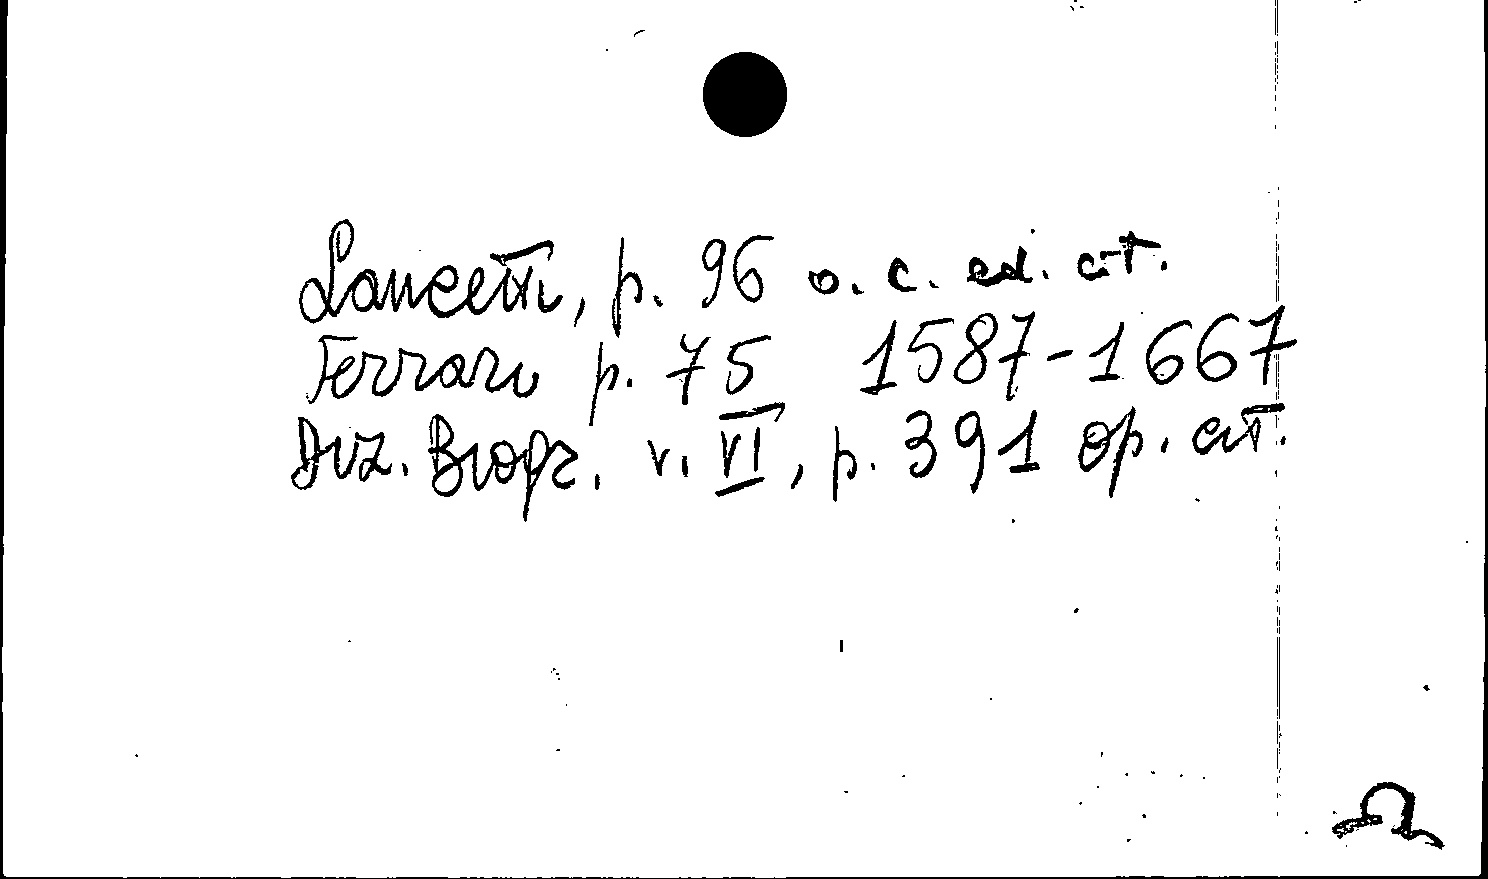 Lancetti, p. 96 o. c. ed. cit.
Ferrari p. 75 1587-1667
Diz. Biogr. v. VI, p. 391 op. cit.